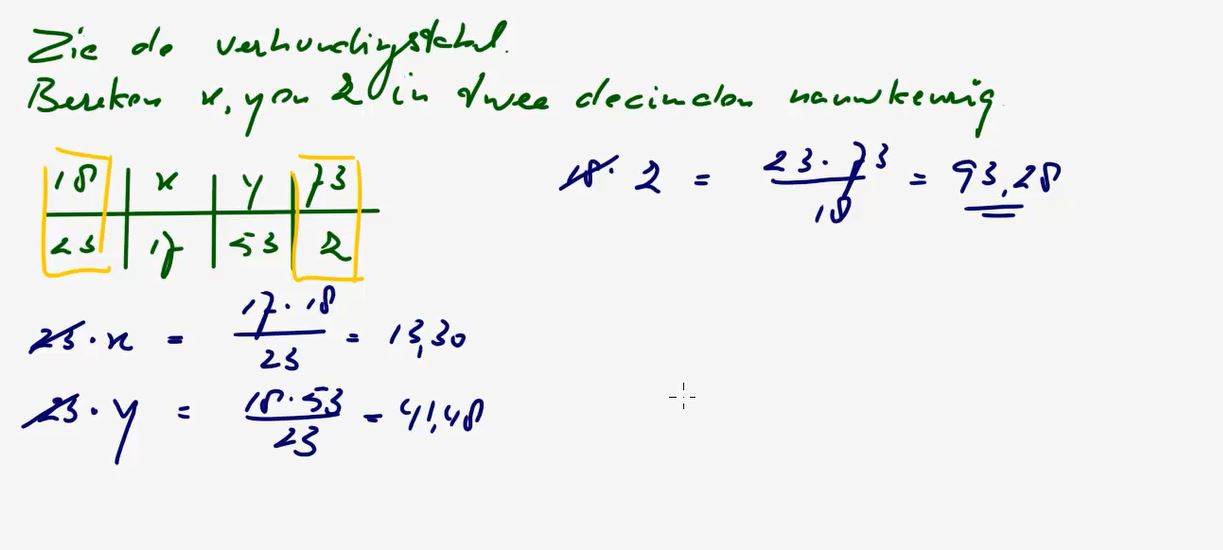 Zie de verhoudingstabel.
Bereken x, y en z in twee decimalen nauwkeurig
18 | x | y | 73
23 | 17 | 53 | z
23 · x = 17 · 18 / 23 = 13,30
23 · y = 18 · 53 / 23 = 41,48
18 · z = 23 · 73 / 18 = 93,28